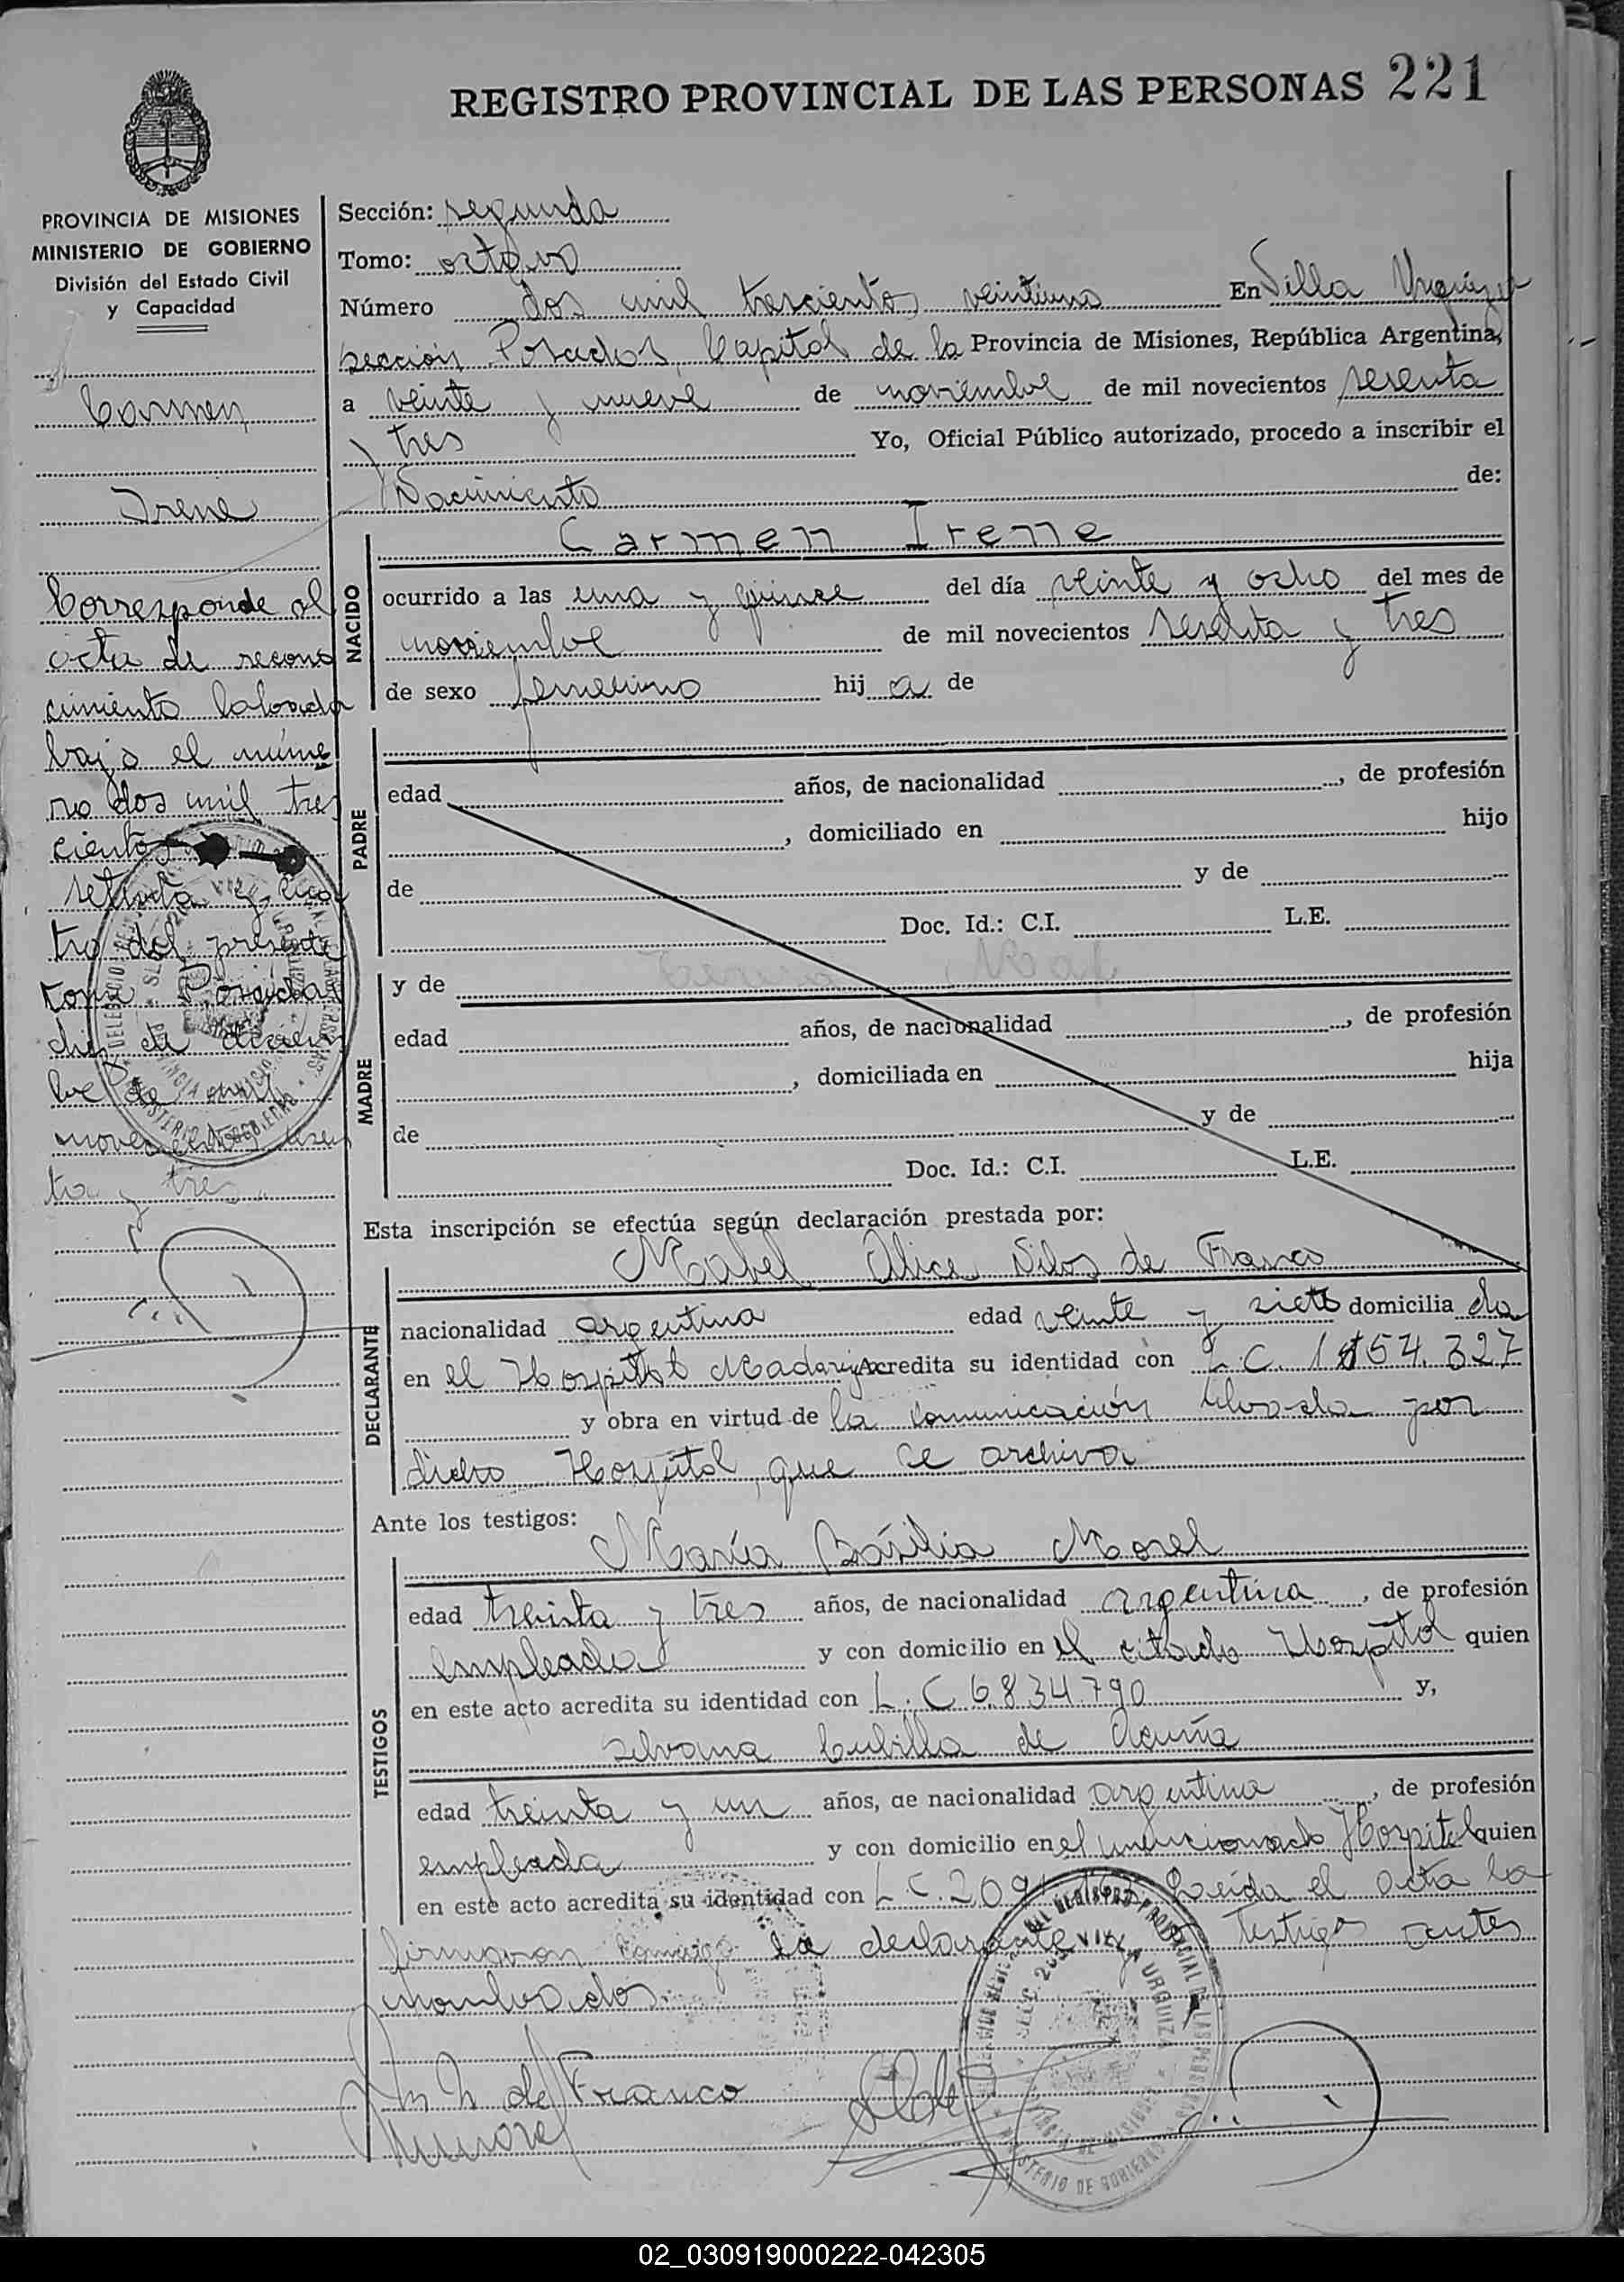 REGISTRO PROVINCIAL DE LAS PERSONAS 221
PROVINCIA DE MISIONES
MINISTERIO DE GOBIERNO
División del Estado Civil
y Capacidad
Carmen
Irene
Corresponde al
acta de recono
cimiento labrada
bajo el núme
ro dos mil tres
cientos
setenta y cua
tro del presente
tomo Posadas
diez de diciem
bre de mil
novecientos sesen
ta y tres.
Sección: segunda
Tomo: octavo
Número dos mil trescientos veintiuno En Villa Urquiza
sección Posadas, Capital de la Provincia de Misiones, República Argentina,
a veinte y nueve de noviembre de mil novecientos sesenta
y tres Yo, Oficial Público autorizado, procedo a inscribir el
Nacimiento de:
NACIDO
Carmen Irene
ocurrido a las una y quince del día veinte y ocho del mes de
noviembre de mil novecientos sesenta y tres
de sexo femenino hij a de
PADRE
edad años, de nacionalidad , de profesión
, domiciliado en hijo
de y de
Doc. Id.: C.I. L.E.
MADRE
y de
edad años, de nacionalidad , de profesión
, domiciliada en hija
de y de
Doc. Id.: C.I. L.E.
Esta inscripción se efectúa según declaración prestada por:
DECLARANTE
Mabel Alice de Franco
nacionalidad argentina edad veinte y siete domicilia da
en el Hospital Madariaga acredita su identidad con L.C.
y obra en virtud de la comunicación librada por
dicho Hospital que se archiva
Ante los testigos:
TESTIGOS
María Básilia Morel
edad treinta y tres años, de nacionalidad argentina , de profesión
empleada y con domicilio en el citado Hospital quien
en este acto acredita su identidad con L.C 6.834.790 y,
Silvana Cubilla de Acuña
edad treinta y un años, de nacionalidad argentina , de profesión
empleada y con domicilio en el mencionado Hospital quien
en este acto acredita su identidad con L.C. Leida el acta la
firmaron conmigo la declarante y testigos antes
nombrados.
de Franco
02_030919000222-042305